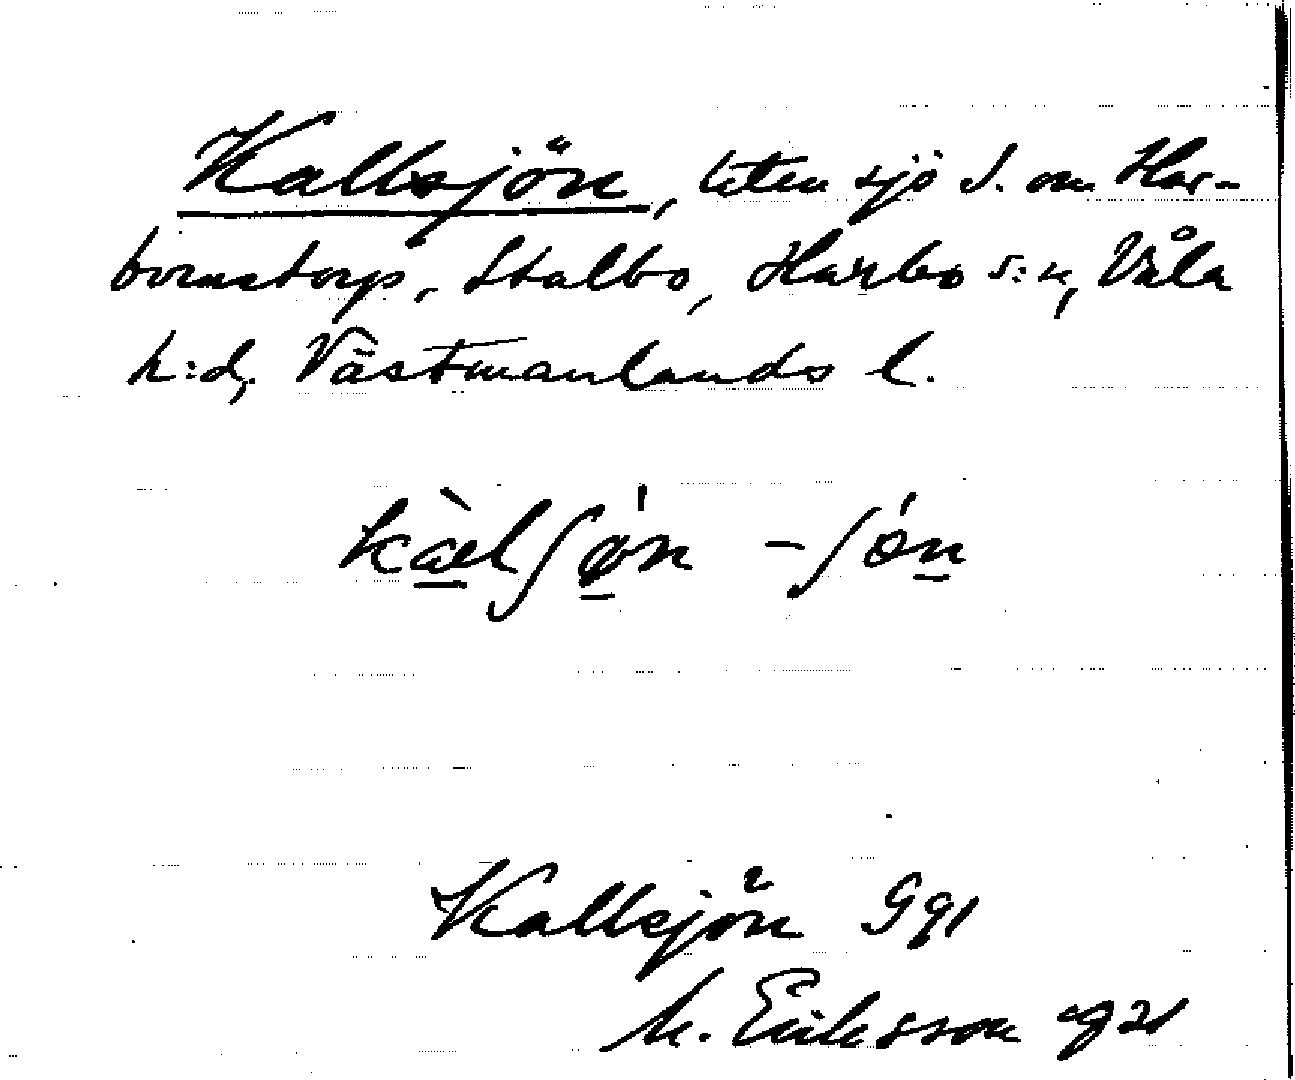 Kallsjön, liten sjö S. om Har-
bornstorp, Stalbo, Harbo s:n, Våla
h:d, Västmanlands l.
kàlʃǿn -ʃǿn
Kallsjön Gg1
M. Eriksson 1921